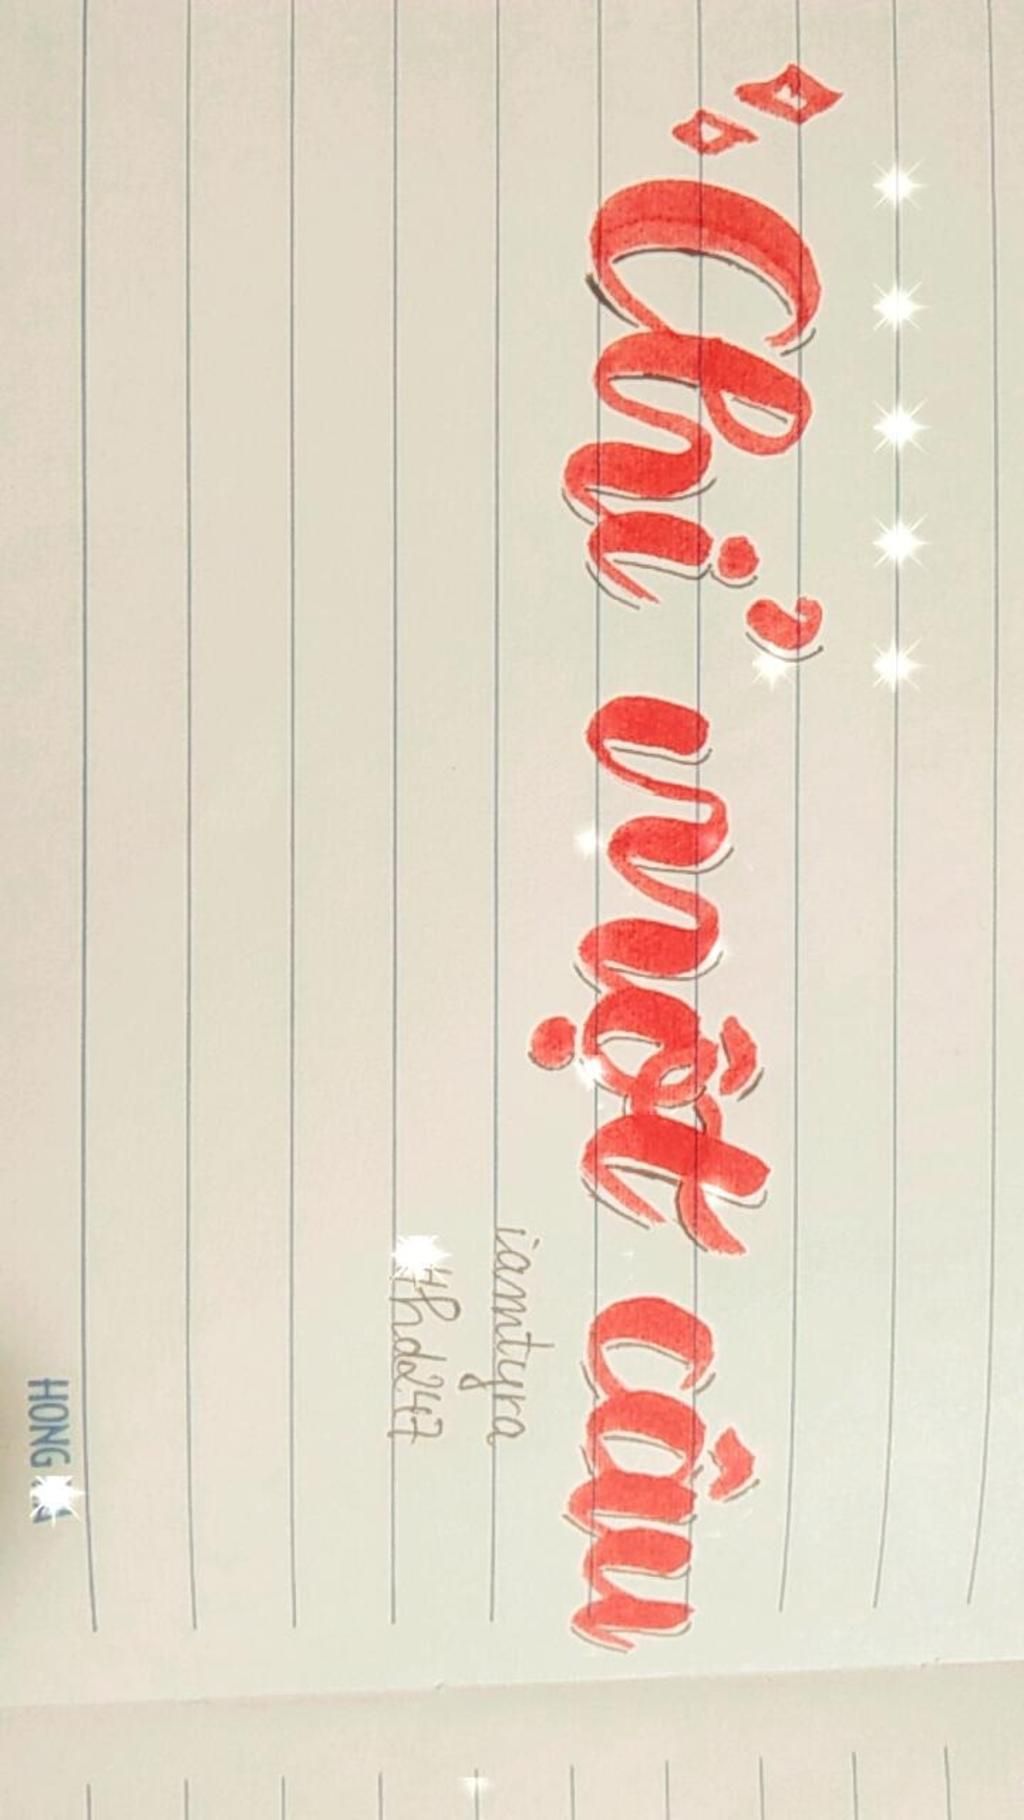 Chỉ một câu
iamtyra
thdd247
HONG